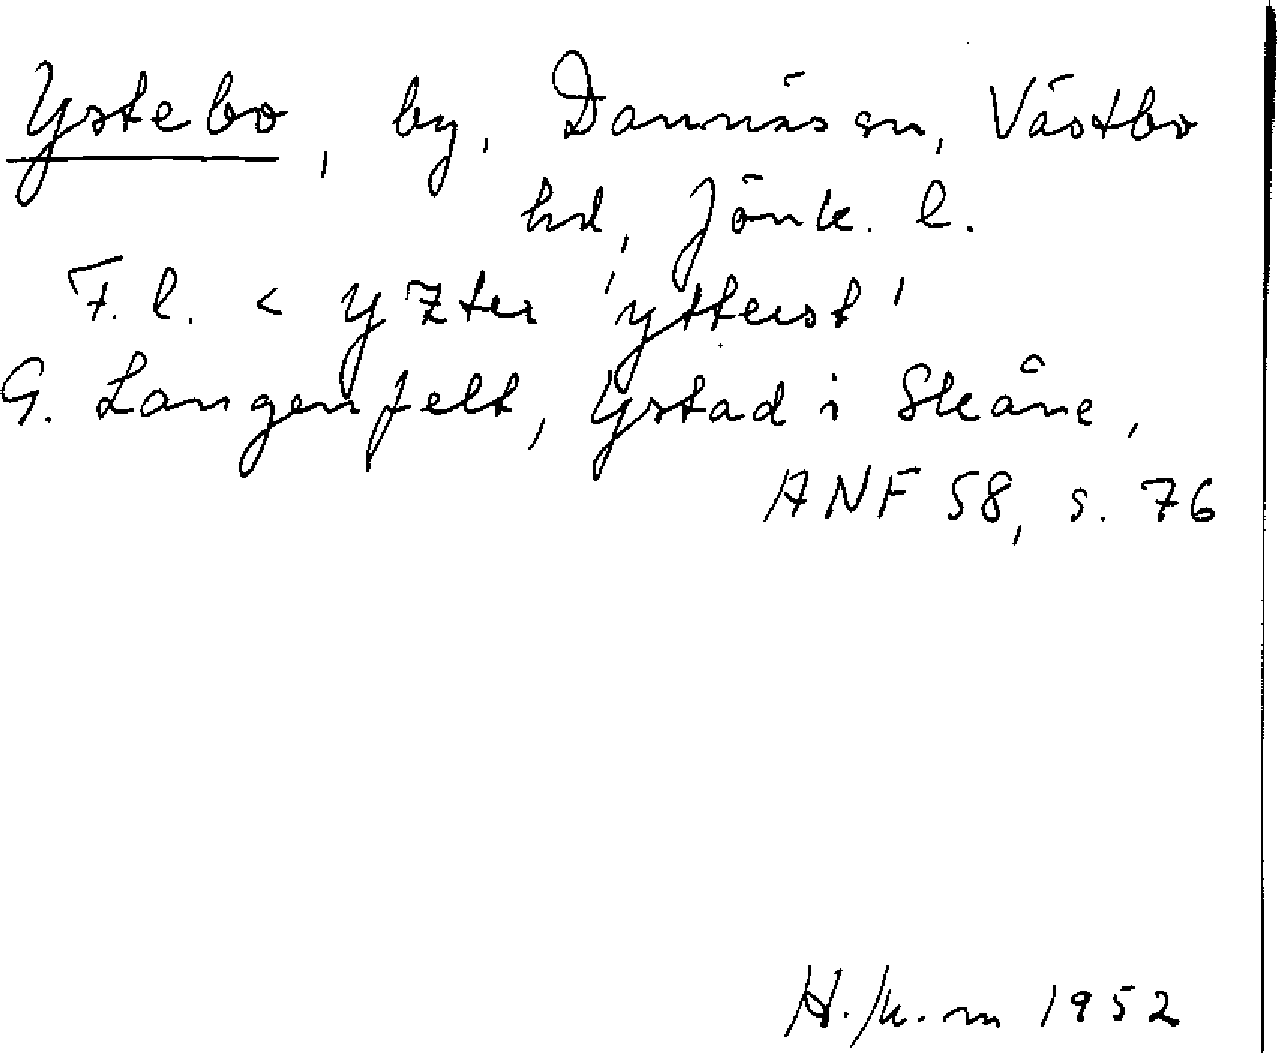 Ystebo, by, Dannäs sn, Västbo
hd, Jönk. l.
F. l. < yzter 'ytterst'
G. Langenfelt, Ystad i Skåne,
ANF 58, s. 76
1952